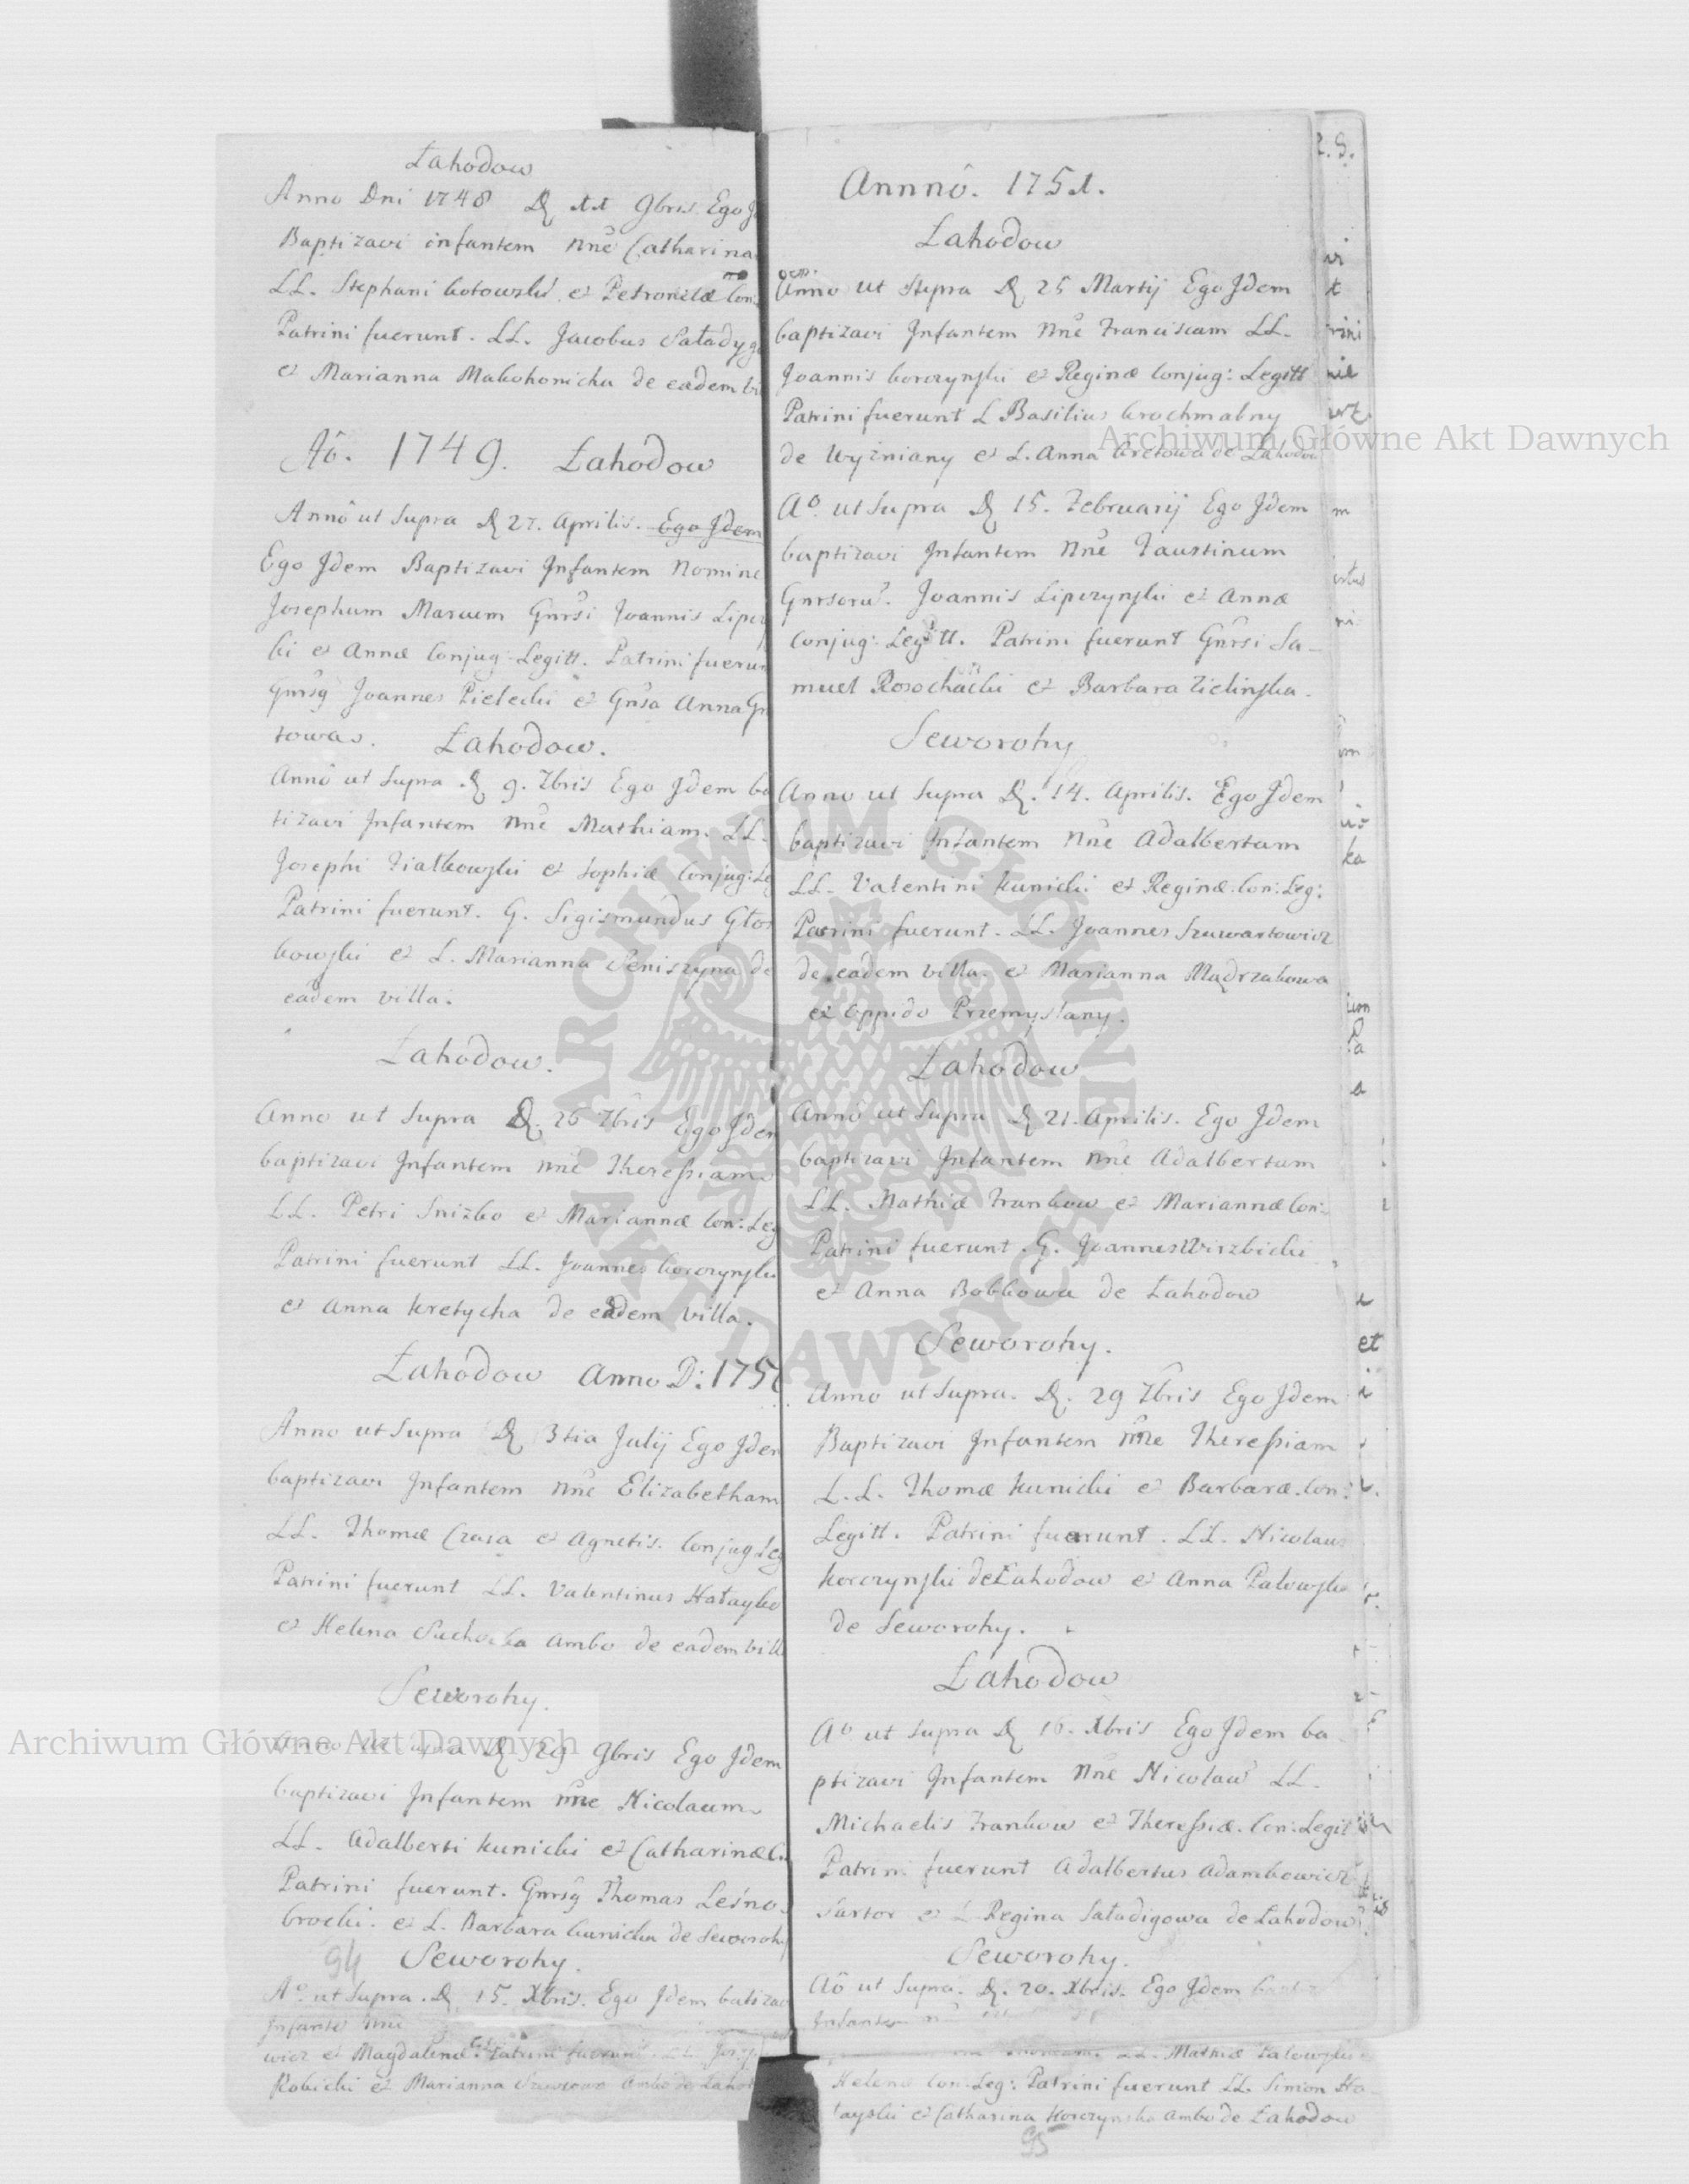 Łahodow
Anno Dni 1748 D. 11 9bris Ego
Baptizavi infantem nne Catharina
LL. Stephani Kotowski et Petronelæ Con:
Patrini fuerunt. LL. Jacobus Saładyga
et Marianna Makohonicha de eadem vi
Aô. 1749. Łahodow
Annô ut Supra D 27. Aprilis. Ego Jdem
Ego Jdem Baptizavi Jnfantem Nomine
Josephum Marcum Gnrsi Joannis Lipczy
ki et Annæ Conjug: Legitt. Patrini fuerun
Gnrsg Joannes Pielecki et Gnsa Anna
towas. Łahodow.
Annô ut Supra D 9. 7bris Ego Jdem ba
tizavi Jnfantem Nne Mathiam. LL.
Josephi Fiałkowski et Sophiæ Conjug: Le
Patrini fuerunt. G. Sigismundus Głos
kowski et L. Marianna Seniszyna de
eadem villa.
Łahodow.
Anno ut Supra D. 26 7bris Ego Jdem
baptizavi Jnfantem nne Theressiam
LL. Petri Snizko et Mariannæ Con: Leg
Patrini fuerunt LL. Joannes Korczynski
et Anna Kretycha de eadem villa.
Łahodow Anno D: 175
Anno ut Supra D 3tia Julij Ego Jdem
baptizavi Jnfantem Nne Elizabetham
LL. Thomæ Czasa et Agnetis. Conjug Leg
Patrini fuerunt LL. Valentinus Hałayko
et Helena Suchocka ambo de eadem vill
Seworohy.
D 29 9bris Ego Jdem
baptizavi Jnfantem nne Nicolaum
LL. Adalberti Kunicki et Catharinæ C
Patrini fuerunt. Gnrsg Thomas Leśno
brocki. et L. Barbara Kunicka de Seworohy
94 Seworohy.
Aº ut Supra. D 15. Xbris. Ego Jdem batizav
Jnfante nne
wicz et Magdalenæ Patrini fuerunt LL.
Robicki et Marianna ambo de Łahod
Annnô. 1751.
Łahodow
Anno ut Supra D 25 Martij Ego Jdem
baptizavi Jnfantem Nne Franciscam LL.
Joannis Korczynski et Reginæ Conjug: Legitt
Patrini fuerunt L Basilius Krochmalny
de Wyżniany et L. Anna Kretowa de Łahodow
Aº. ut Supra D 15. Februarij Ego Jdem
baptizavi Jnfantem Nne Faustinum
Gnrsoru. Joannis Lipczynski et Annæ
Conjug: Legitt. Patrini fuerunt Gnrsi Sa-
muel Rosochacki et Barbara Zielinska.
Seworohy
Anno ut Supra D. 14. Aprilis. Ego Jdem
baptizavi Jnfantem Nne Adalbertum
LL. Valentini Kunicki et Reginæ. Con: Leg:
Patrini fuerunt. LL. Joannes Szuwartowicz
de eadem villa. et Marianna Mądrzakowa
ex Oppido Przemyslany.
Łahodow
Annô ut Supra D 21. Aprilis. Ego Jdem
baptizavi Jnfantem Nne Adalbertum
LL. Mathiæ Frankow et Mariannæ Con:
Patrini fuerunt. G. Joannes Wirzbicki
et Anna Bobkowa de Łahodow
Seworohy.
Anno ut Supra. D. 29 7bris Ego Jdem
Baptizavi Jnfantem nne Theressiam
L.L. Thomæ Kunicki et Barbaræ. Con:
Legitt. Patrini fuerunt. LL. Nicolaus
Korczynski de Łahodow et Anna Palowska
de Seworohy.
Łahodow
Aº ut Supra D 16. Xbris Ego Jdem ba
ptizavi Jnfantem Nne Nicolau LL.
Michaelis Frankow et Theressiæ. Con: Legit
Patrini fuerunt Adalbertus Adamkowicz
Sartor et L Regina Saładigowa de Łahodow
Seworohy.
Aô ut Supra. D. 20. Xbris. Ego Jdem
Jnfantem
LL. Mathiæ Palowski
Helenæ Con: Leg: Patrini fuerunt LL. Simon Ha-
łayski et Catharina Korczynska ambo de Łahodow
95
Archiwum Główne Akt Dawnych
Archiwum Główne Akt Dawnych
ARCHIWUM GŁÓWNE AKT DAWNYCH